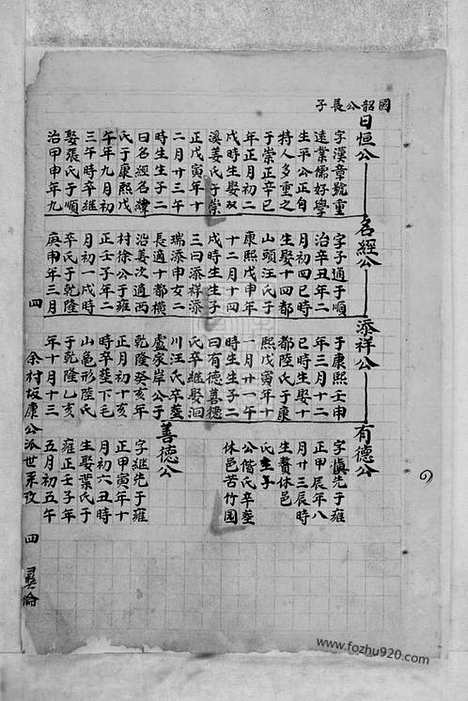 國韶公長子
日恒公
字漢章號重
遠業儒好學
生平公正自
持人多重之
于崇正辛巳
年正月初二
戌時生娶双
溪姜氏于崇
正戊寅年十
二月廿三午
時生生子二
曰名經名標
氏于康熙戊
午年九月初
三午時卒継
娶張氏于順
治甲申年九
名經公
字子通于順
治辛丑年二
月初四巳時
生娶十四都
山頭汪氏于
康熙戊申年
十二月十四
戌時生生子
三曰添祥添
瑞添申女二
長適十都橫
沿姜次適西
村徐公于雍
正壬子年二
月初一戌時
卒氏于乾隆
庚申年三月
添祥公
于康熙壬申
年三月十二
巳時生娶四
都陸氏于康
熙戊寅年十
一月廿一午
時生生子二
曰有德善德
氏卒継娶洄
川汪氏卒塟
盧家岸公于
乾隆癸亥年
正月初十亥
時卒塟下毛
山龜形陸氏
于乾隆乙亥
年十月十三
有德公
字慎先于雍
正甲辰年八
月廿三辰時
生贅休邑
氏生子
公偕氏卒塟
休邑苦竹园
善德公
字継先于雍
正甲寅年十
月初六丑時
生娶葉氏于
雍正壬子年
五月初五午
四 余村坂康公派世系攷 四 彛倫
www.fozhu920.com